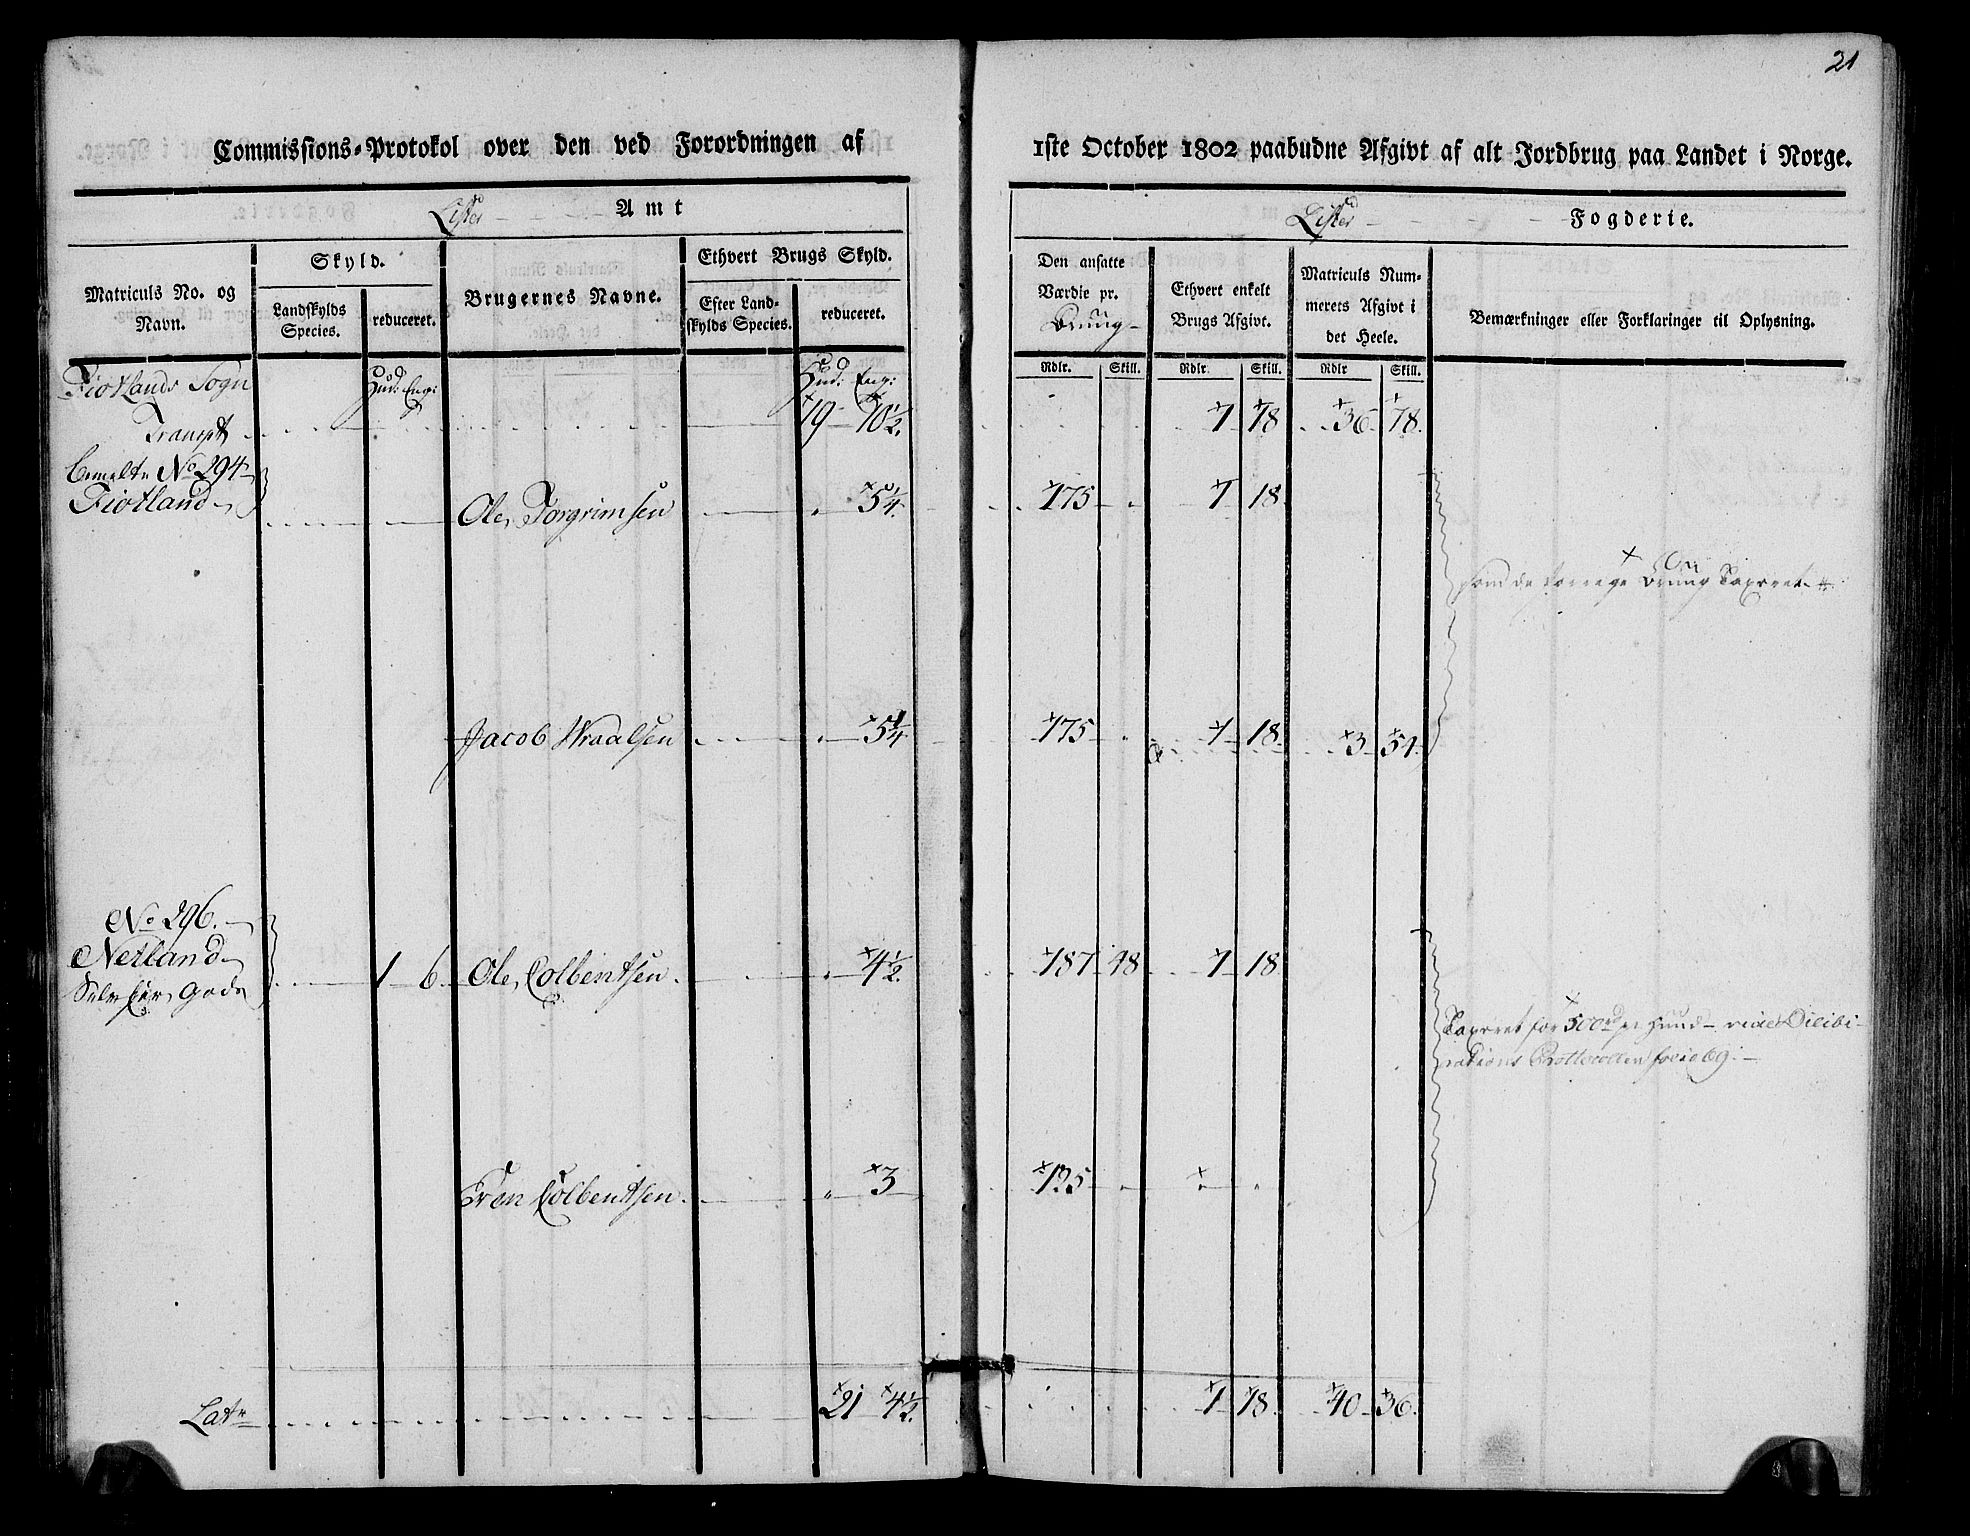 21
Commissions-Protokol over den ved Forordningen af
1ste October 1802 paabudne Afgivt af alt Jordbrug paa Landet i Norge.
Lister Amt
Lister Fogderie.
Matriculs No. og Navn.
Skyld.
Landskylds Species.
reduceret.
Brugernes Navne.
Ethvert Brugs Skyld.
Efter Landskylds Species.
reduceret.
Den ansatte Værdie pr. Bruug
Ethvert enkelt Brugs Afgivt.
Matriculs Nummerets Afgivt i det Heele.
Bemærkninger eller Forklaringer til Oplysning.
Rdlr. Skill. Rdlr. Skill. Rdlr Skill.
Fiotlands Sogn Hud: Eng: Hud: Eng:
Transpt 19 10½. 1 18 36 78.
No 294
Fiotland Ole Torgrimsen 5¼. 175 1 18
som de Bruug Taxeret
Jacob Wraalsen 5¼ 175 1 18 3 54
No 296.
Netland 1 6 Ole Colbentsen 4½. 187 48 1 18
Gods
Taxeret for 500 rd pr Huud
Protocollen folio 69.
Tron Colbentsen. 3 125
Latr 21 4½. 1 18 40 36.